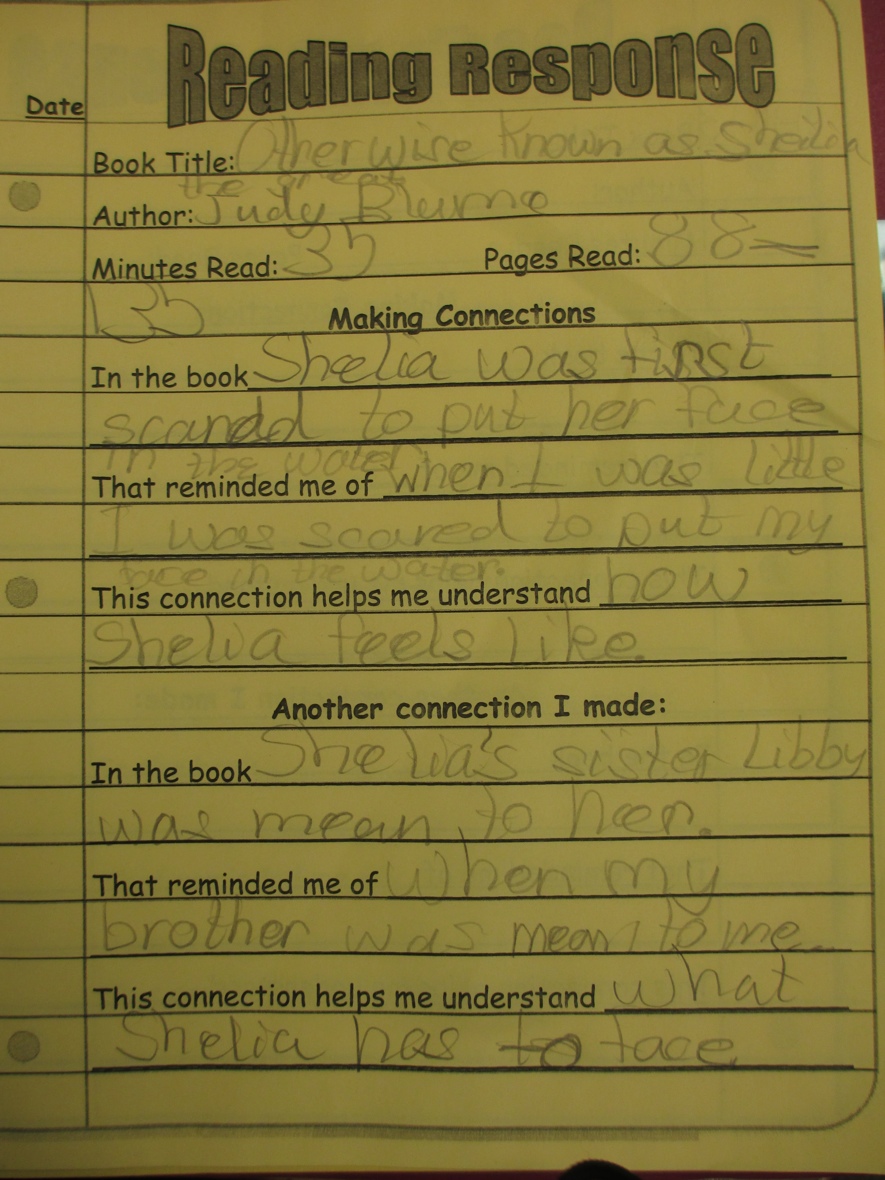 Reading Response
Date
Book Title: Otherwise Known as Sheilia
the great
Author: Judy Blume
Minutes Read: 35 Pages Read: 88
135
Making Connections
In the book Shelia was first
scared to put her face
in the water.
That reminded me of when I was little
I was scared to put my
face in the water.
This connection helps me understand how
Shelia feels like.
Another connection I made:
In the book Shelia's sister Libby
was mean to her.
That reminded me of When my
brother was mean to me.
This connection helps me understand what
Shelia has to face